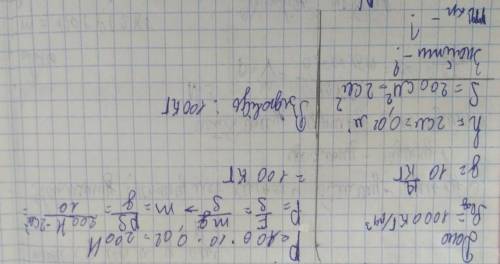 Дано
g = 10 Н/кг
h = 2см = 0,02 м
S = 200 см² = 2см²
Знайти - ?
P=100 · 10 · 0,02 = 200Н
P = F/S = mg/S → m = PS/g = 200Н·2см²/10 =
= 100 КГ
Відповідь : 100КГ